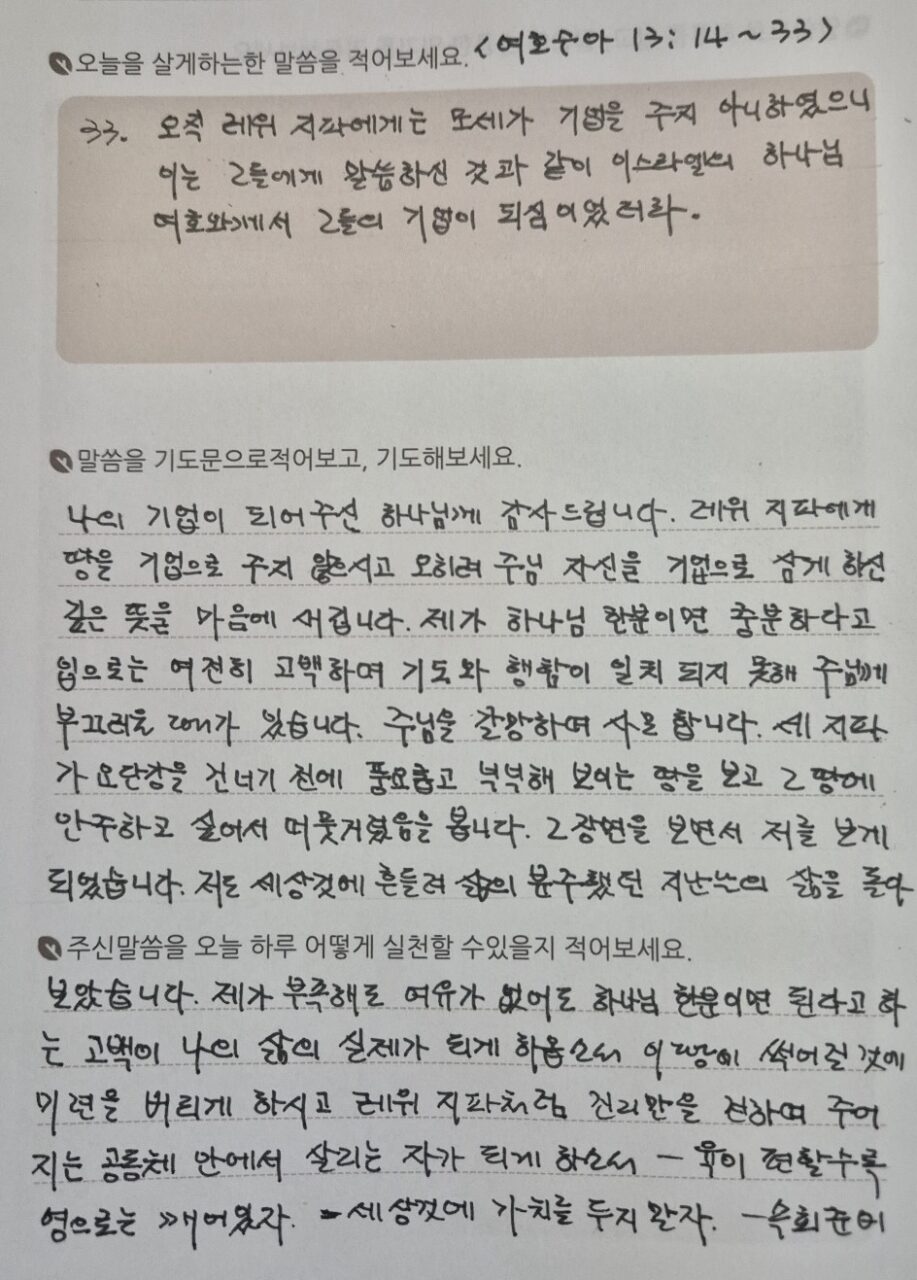 오늘을 살게하는한 말씀을 적어보세요. <여호수아 13: 14 ~ 33>
33. 오직 레위 지파에게는 모세가 기업을 주지 아니하였으니
이는 그들에게 말씀하신 것과 같이 이스라엘의 하나님
여호와께서 그들의 기업이 되심이었더라.
말씀을 기도문으로적어보고, 기도해보세요.
나의 기업이 되어주신 하나님께 감사드립니다. 레위 지파에게
땅을 기업으로 주지 않으시고 오히려 주님 자신을 기업으로 삼게 하신
깊은 뜻을 마음에 새깁니다. 제가 하나님 한분이면 충분하다고
입으로는 여전히 고백하며 기도와 행함이 일치 되지 못해 주님께
부끄러울 때가 있습니다. 주님을 갈망하며 사모 합니다. 세 지파
가 요단강을 건너기 전에 풍요롭고 넉넉해 보이는 땅을 보고 그 땅에
안주하고 싶어서 머뭇거렸음을 봅니다. 그 장면을 보면서 저를 보게
되었습니다. 저도 세상것에 흔들려 삶의 분주했던 지난 삶을 돌아
주신말씀을 오늘 하루 어떻게 실천할 수있을지 적어보세요.
보았습니다. 제가 부족해도 여유가 없어도 하나님 한분이면 된다고 하
는 고백이 나의 삶의 실제가 되게 하옵소서 이 땅에 썩어질 것에
미련을 버리게 하시고 레위 지파처럼 진리만을 전하며 주어
지는 공동체 안에서 살리는 자가 되게 하소서 - 육이 편할수록
영으로는 깨어있자. - 세상것에 가치를 두지 말자. -